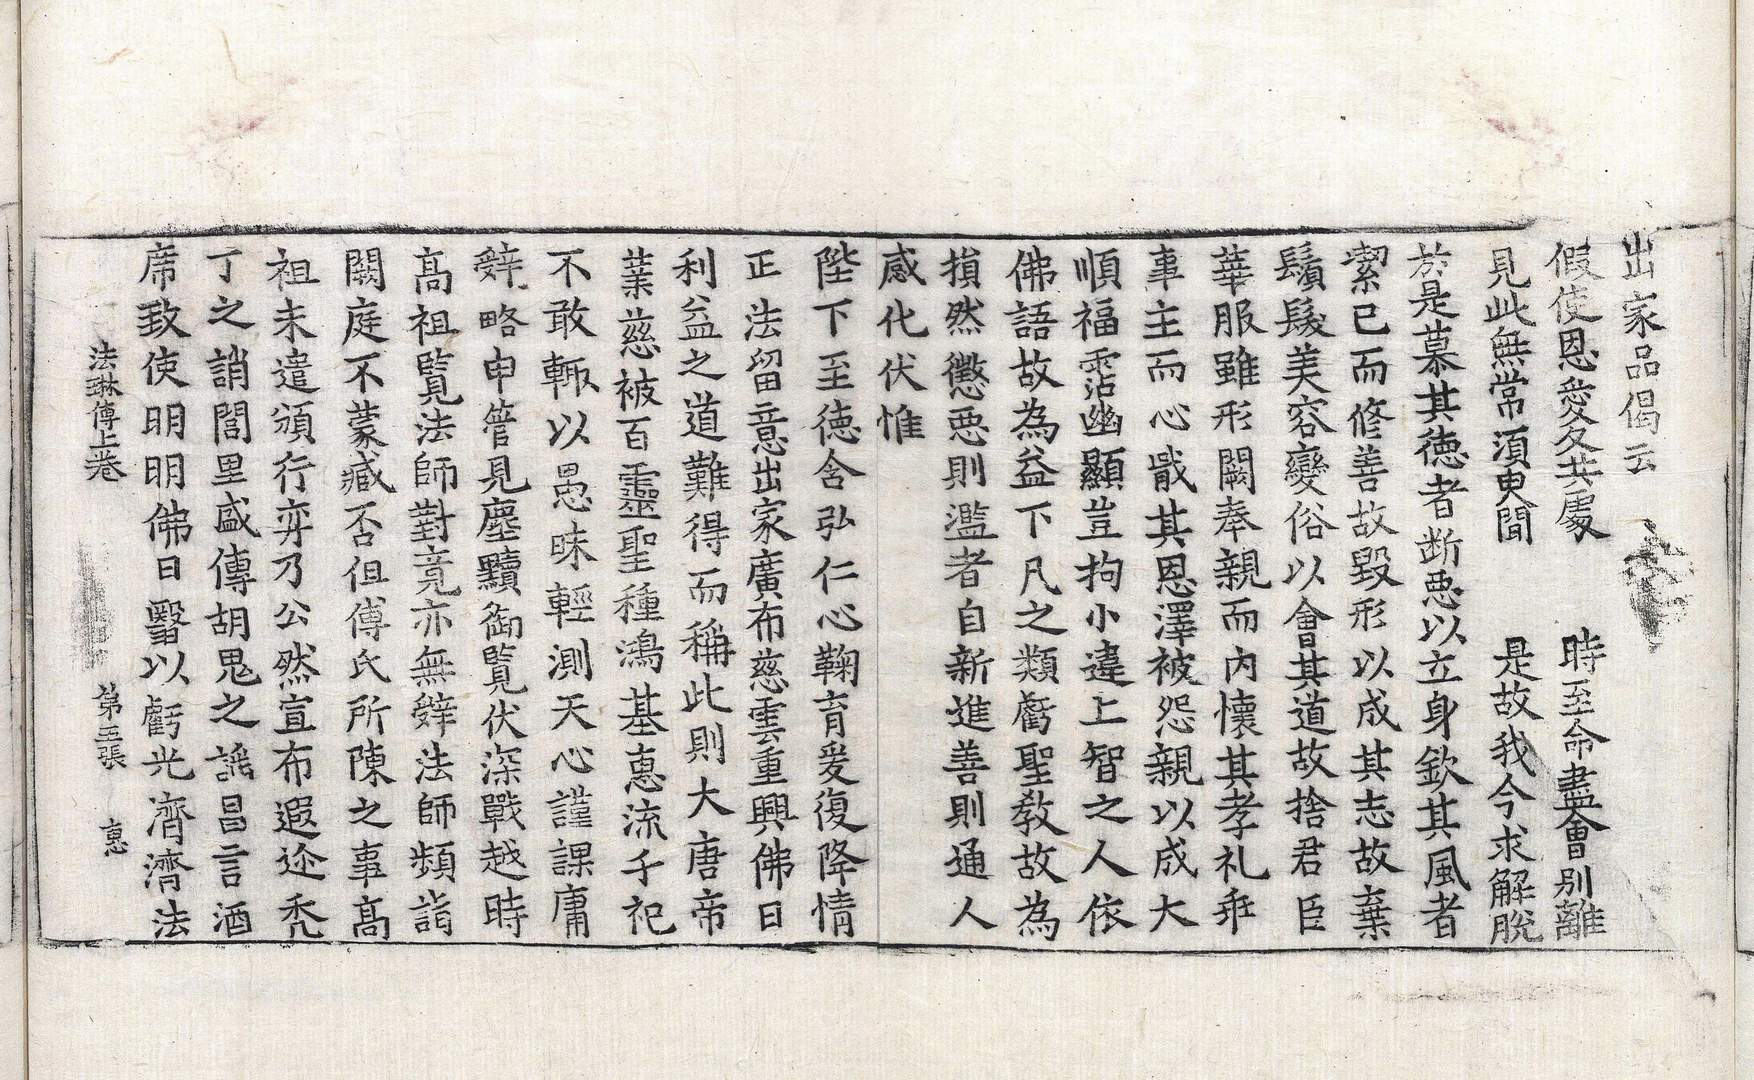 出家品偈云
假使恩愛久共處　時至命盡會別離
見此無常須臾間　是故我今求解脫
於是慕其徳者断惡以立身欽其風者
潔己而修善故毀形以成其志故棄
鬚髮美容變俗以會其道故捨君臣
華服雖形闕奉親而内懷其孝礼乖
事主而心戢其恩澤被怨親以成大
順福霑幽顯豈拘小違上智之人依
佛語故為益下凡之類虧聖教故為
損然懲惡則濫者自新進善則通人
感化伏惟
陛下至徳含弘仁心鞠育爰復降情
正法留意出家廣布慈雲重興佛日
利益之道難得而稱此則大唐帝
業慈被百靈聖種鴻基惠流千祀
不敢輙以愚昧輕測天心謹課庸
辤略申管見塵黷御覧伏深戰越時
高祖覧法師對竟亦無辤法師頻詣
闕庭不蒙臧否但傅氏所陳之事高
祖未遑頒行弈乃公然宣布遐迩禿
丁之誚閭里盛傳胡鬼之謡昌言酒
席致使明明佛日翳以虧光濟濟法
法琳傳上卷　第五張　惠